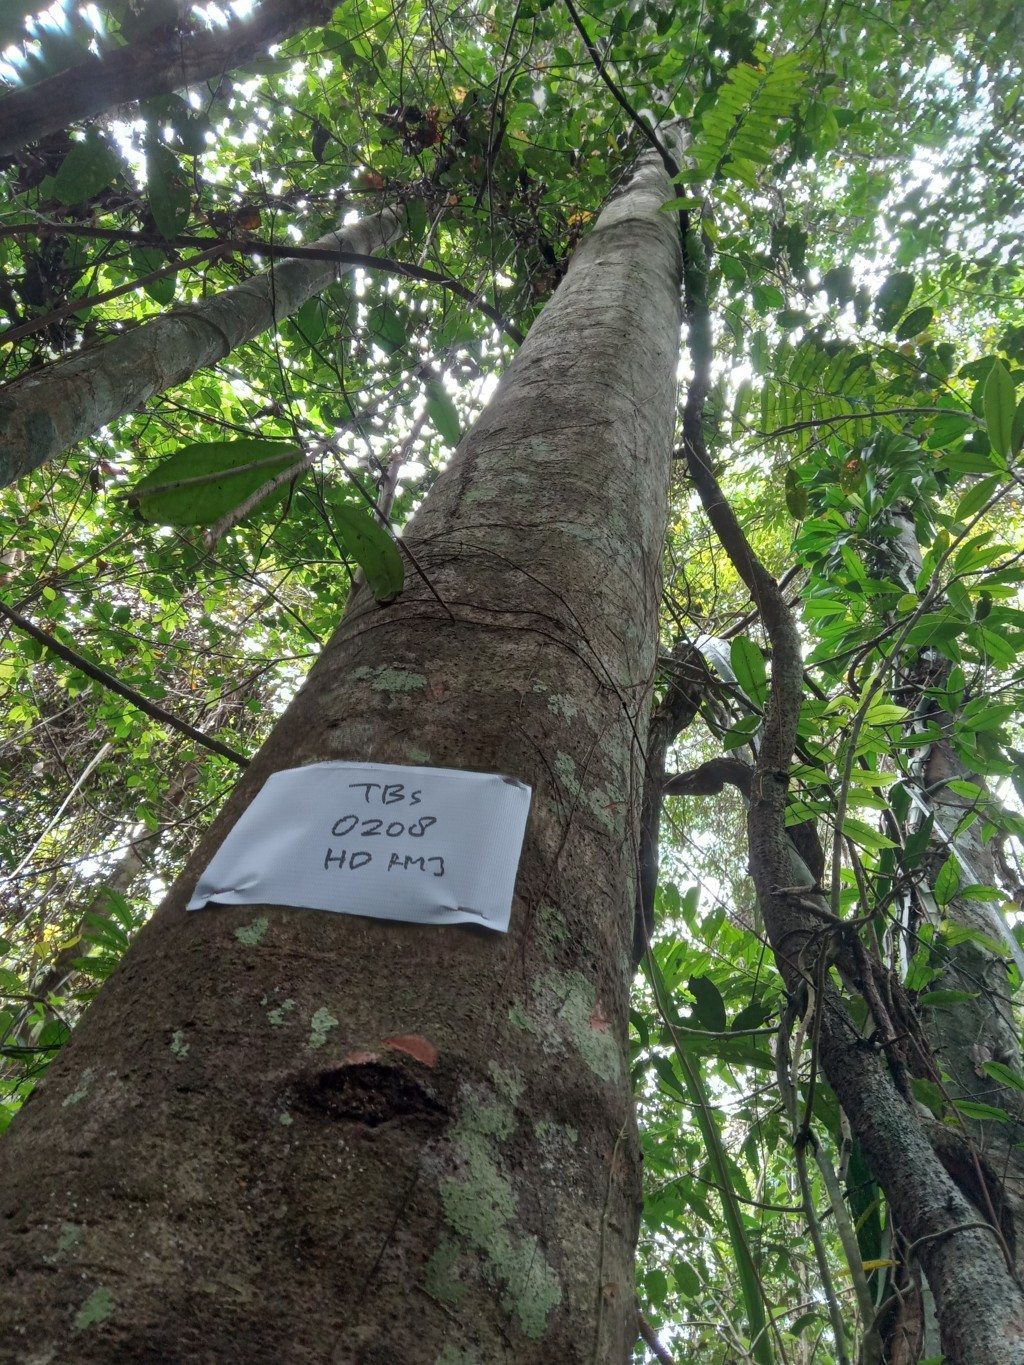 TBs
0208
HD KMJ